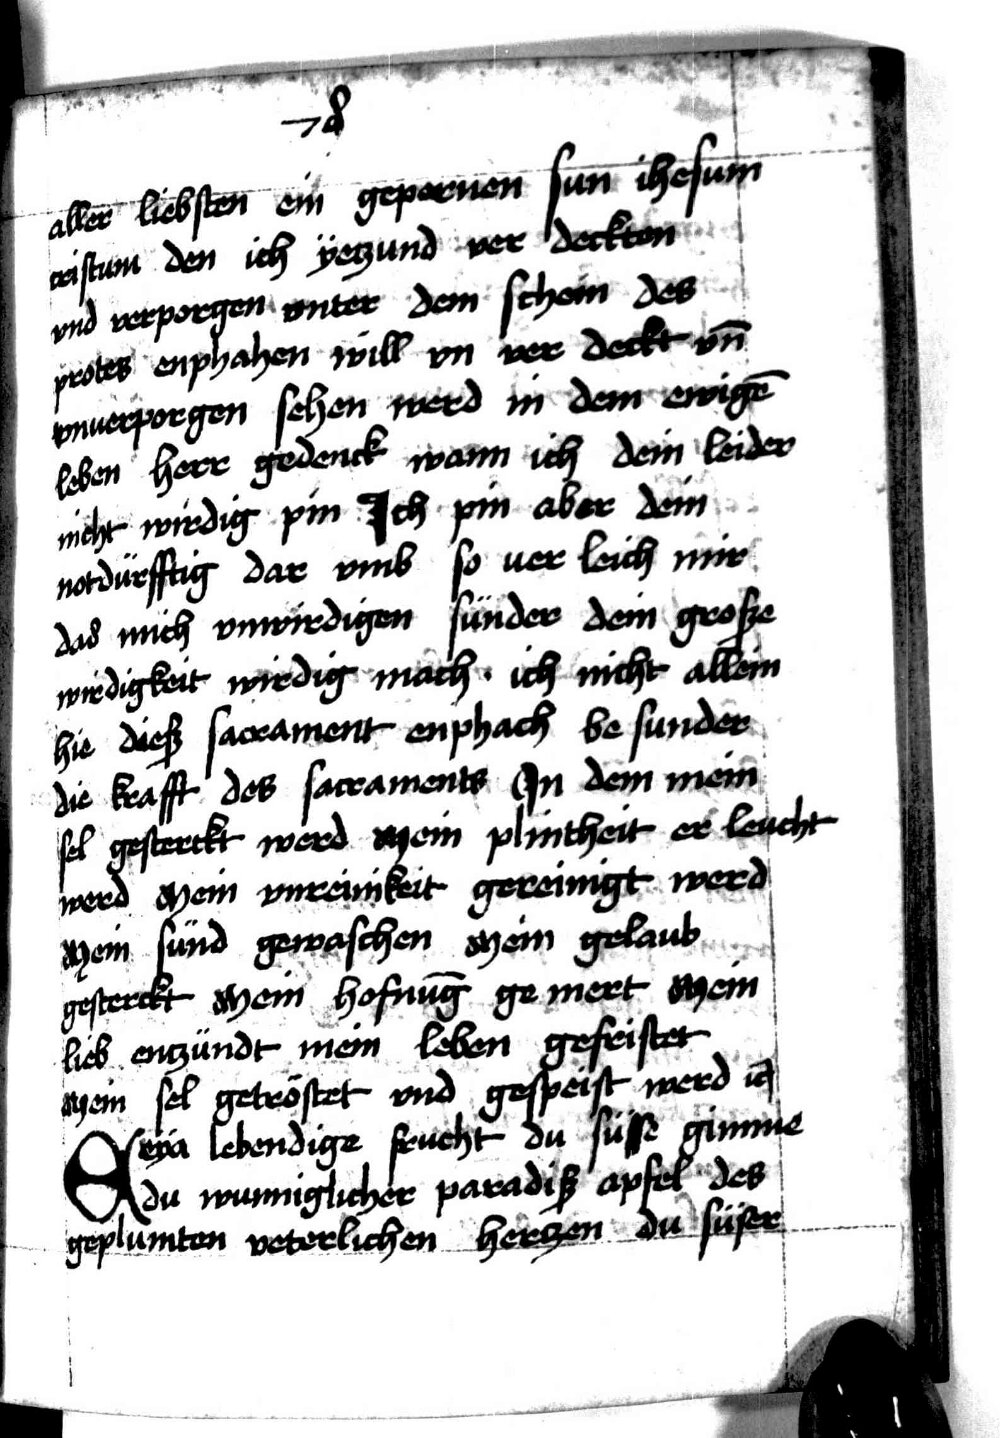 78
aller liebsten ein gepornen sun ihesum
cristum den ich ÿetzund ver deckten
vnd verporgen vnter dem schein des
protes enphahen will vn ver deckt vn̄
vnuerporgen sehen werd in dem ewigē
leben herr gedenck wann ich dein leider
nicht wirdig pin Ich pin aber dein
notdürfftig dar vmb so ver leich mir
das mich vnwirdigen sünder dein große
wirdigkeit wirdig mach · ich nicht allein
hie dieß sacrament enphach be sunder
die krafft des sacraments In dem mein
sel gesterckt werd Mein plintheit er leucht
werd Mein vnreinikeit gereinigt werd
Mein sünd gewaschen Mein gelaub
gesterckt Mein hofnūg ge mert Mein
lieb entzündt mein leben gefristet
Mein sel getröstet vnd gespeist werd
Eeya lebendige frucht du süsse gimme
du wunniglicher paradiß apfel des
geplumten veterlichen hertzen du süser